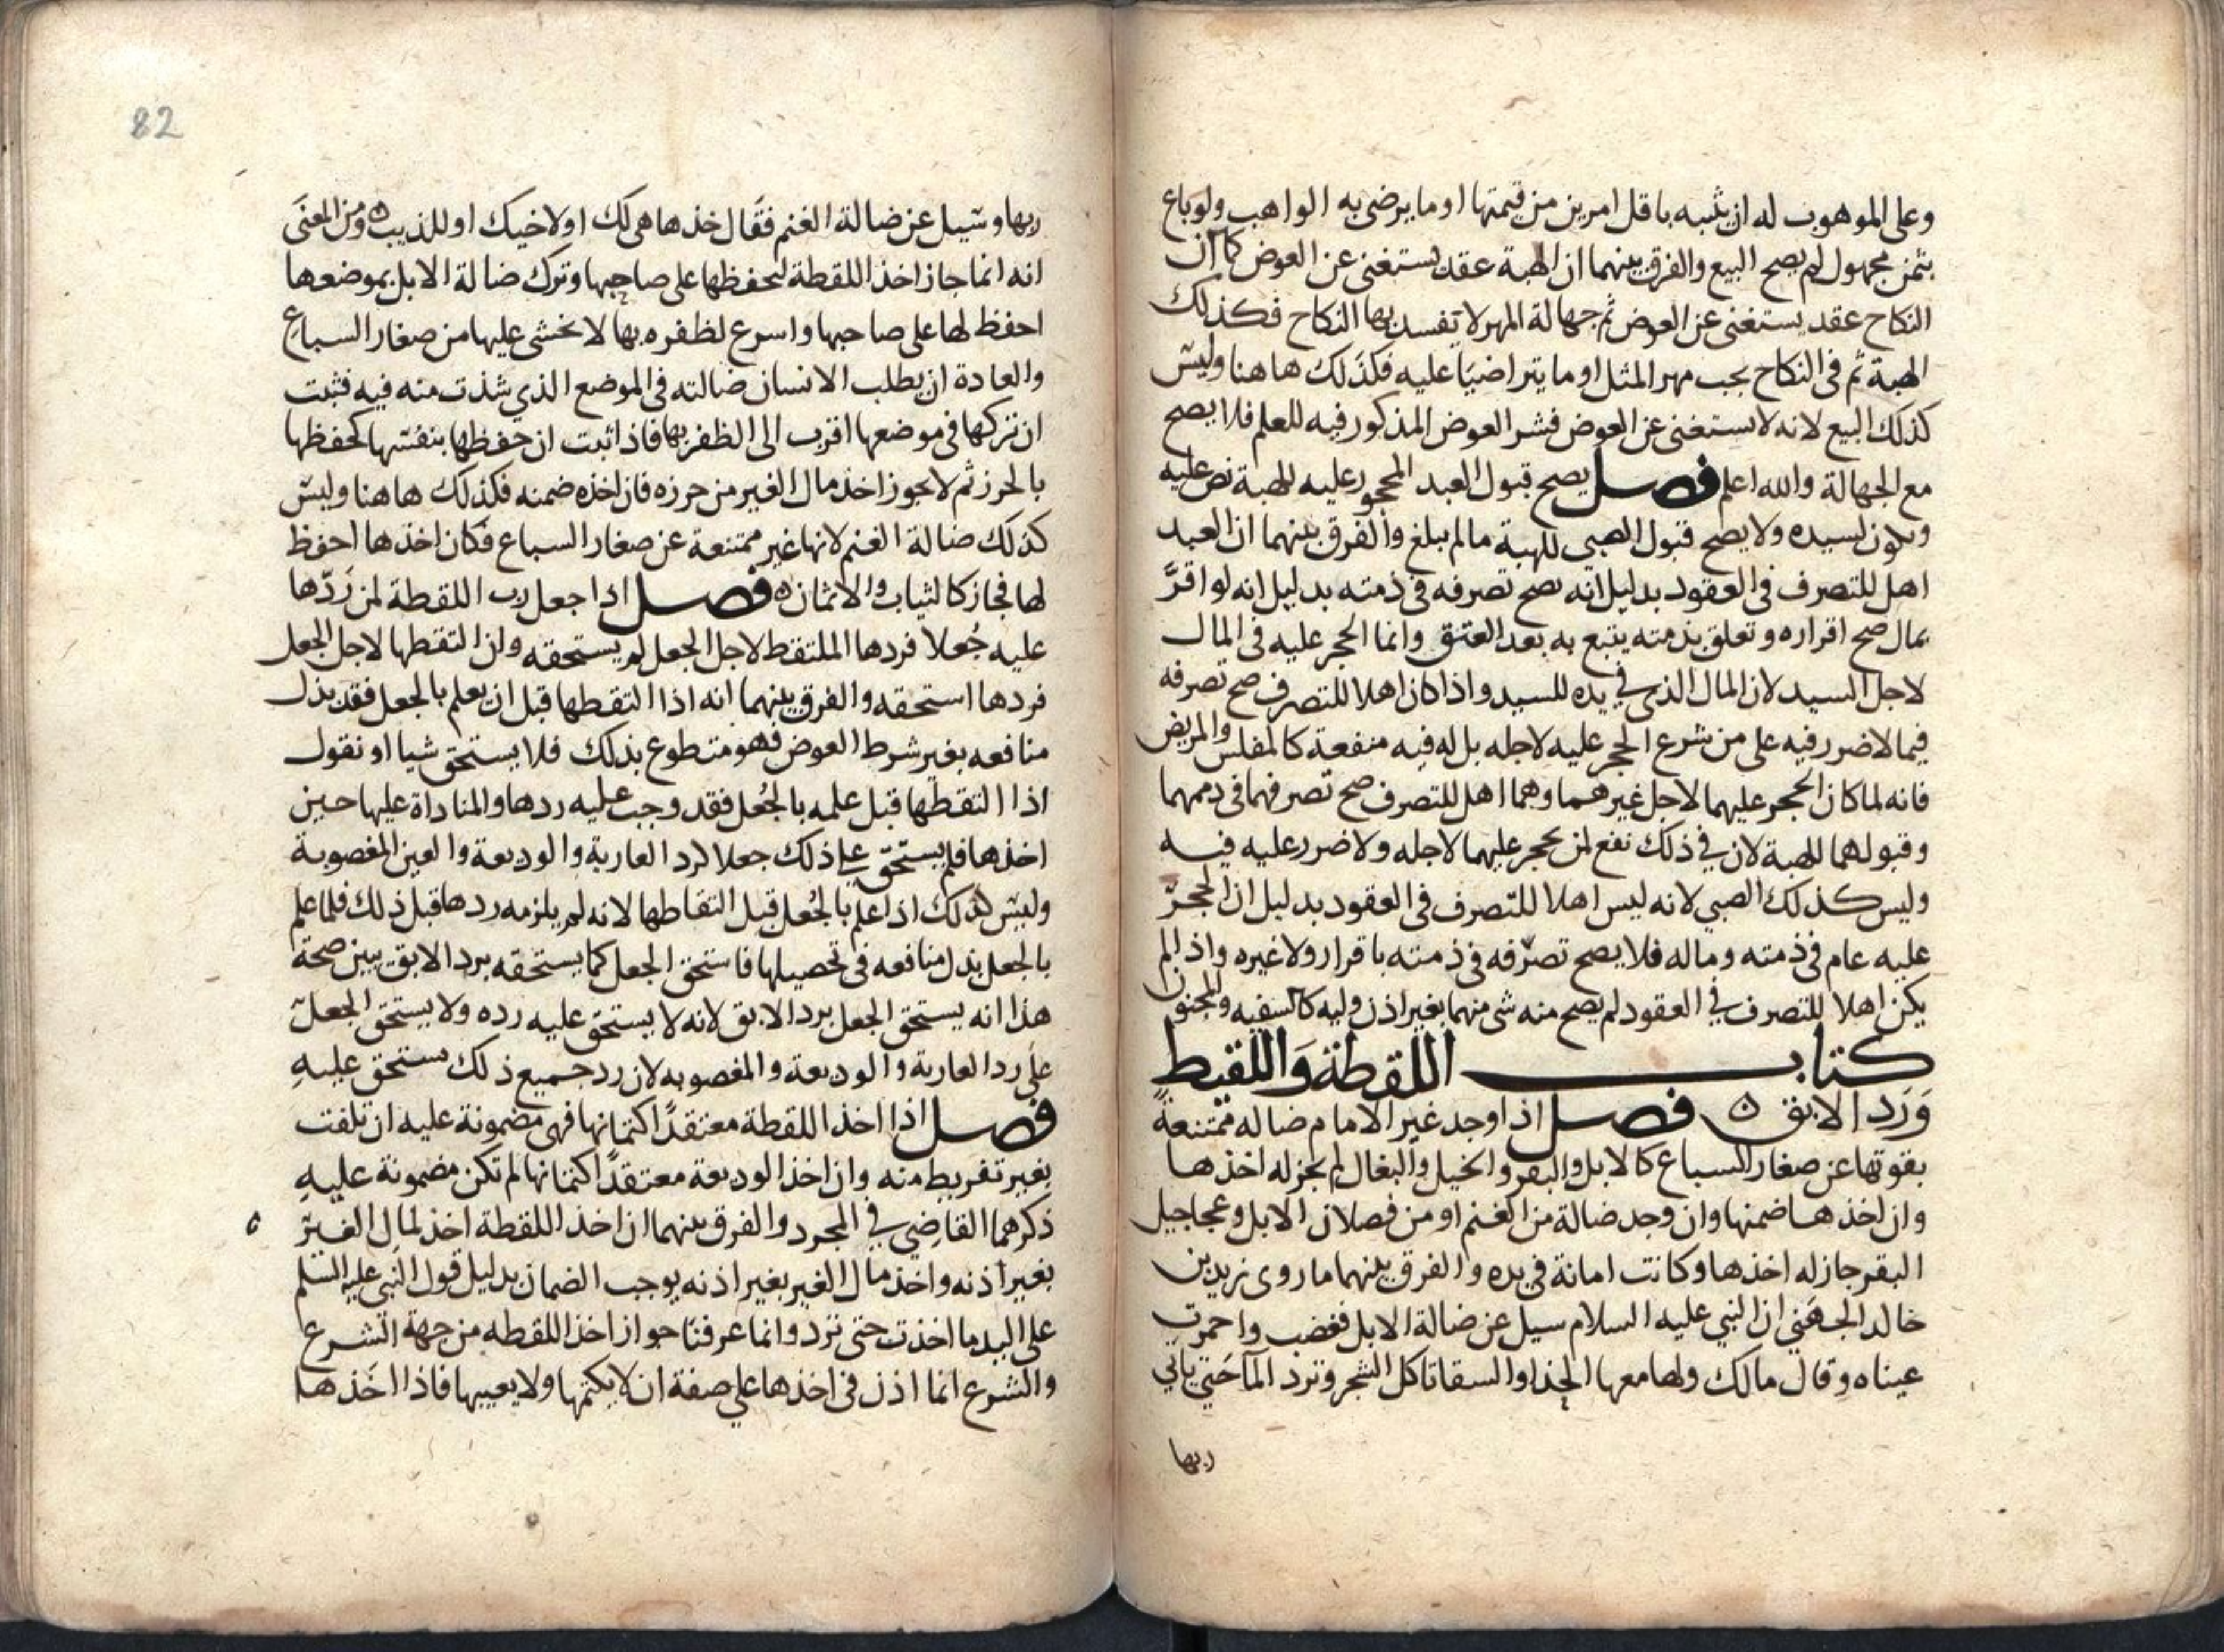 وعلى الموهوب له ان يثيبه باقل امرين من قيمتها او ما يرضى به الواهب ولو باع
بثمن مجهول لم يصح البيع والفرق بينهما ان الهبة عقد يستغنى عن العوض كما ان
النكاح عقد يستغنى عن العوض ثم جهالة المهر لا تفسد بها النكاح فكذلك
الهبة ثم فى النكاح يجب مهر المثل او ما يتراضيا عليه فكذلك هاهنا وليس
كذلك البيع لانه لا يستغنى عن العوض فشر العوض المذكور فيه للعلم فلا يصح
مع الجهالة والله اعلم فصل يصح قبول العبد المحجور عليه للهبة نص عليه
ويكون لسيده ولا يصح قبول الصبي للهبة مالم يبلغ والفرق بينهما ان العبد
اهل للتصرف فى العقود بدليل انه يصح تصرفه فى ذمته بدليل انه لو اقرّ
بمال صح اقراره وتعلق بذمته يتبع به بعد العتق وانما الحجر عليه فى المال
لاجل السيد لان المال الذى في يده للسيد واذا كان اهلا للتصرف صح تصرفه
فيما لا ضرر فيه على من شرع الحجر عليه لاجله بل له فيه منفعة كالمفلس والمريض
فانه لما كان الحجر عليهما لاجل غيرهما وهما اهل للتصرف صح تصرفهما فى ذممهما
وقبولهما للهبة لان في ذلك نفع لمن يحجر عليهما لاجله ولا ضرر عليه فيه
وليس كذلك الصبي لانه ليس اهلا للتصرف فى العقود بدليل ان الحجر
عليه عام فى ذمته وماله فلا يصح تصرّفه فى ذمته باقرار ولا غيره واذا لم
يكن اهلا للتصرف في العقود لم يصح منه شى منهما بغير اذن وليه كالسفيه والمجنون
كتاب اللقطة وَاللقيط
وَرَد الابق ن فصل اذا وجد غير الامام ضاله ممتنعةً
بقوتها عن صغار السباع كالابل والبقر والخيل والبغال لم يجز له اخذها
وان اخذها ضمنها وان وجد ضالة من الغنم او من فصلان الابل وعجاجيل
البقر جاز له اخذها وكانت امانة فى يده والفرق بينهما ما روى زيد بن
خالد الجهَني ان النبي عليه السلام سيل عن ضالة الابل فغضب واحمرت
عيناه وقال مالك ولها معها الحذا والسقا تاكل الشجر وترد المآ حَتى ياتي
ربها
82
ربها وسيل عن ضالة الغنم فقَال خذها هى لك او لاخيك او للذيب ه ومن المعنَى
انه انما جاز اخذ اللقطة ليحفظها على صاحبها وترك ضالة الابل بموضعها
احفظ لها على صاحبها واسرع لظفره بها لا يخشى عليها من صغار السباع
والعادة ان يطلب الانسان ضالته فى الموضع الذي شذت منه فيه فثبت
ان تركها فى موضعها اقرب الى الظفر بها فاذا ثبت ان حفظها بنفسها كحفظها
بالحرز ثم لا يجوز اخذ مال الغير من حرزه فان اخذه ضمنه فكذلك هاهنا وليس
كذلك ضالة الغنم لانها غير ممتنعة عن صغار السباع فكان اخذها احفظ
لها فجاز كالثياب والاثمان ه فصل اذا جعل رب اللقطة لمن رَدّها
عليه جُعلا فردها الملتقط لاجل الجعل لم يستحقه وان التقطها لاجل الجعل
فردها استحقه والفرق بينهما انه اذا التقطها قبل ان يعلم بالجعل فقد بذل
منافعه بغير شرط العوض فهو متطوع بذلك فلا يستحق شيا او نقول
اذا التقطها قبل علمه بالجُعل فقد وجب عليه ردها والمناداة عليها حين
اخذها فلم يستحق على ذلك جعلا كرد العارية والوديعة والعين المغصوبة
وليس كذلك اذا علم بالجُعل قبل التقاطها لانه لم يلزمه ردها قبل ذلك فلما علم
بالجعل بذل منافعه فى تحصيلها فاستحق الجعل كما يستحقه برد الابق يبين صحة
هذا انه يستحق الجعل برد الابق لانه لا يستحق عليه رده ولا يستحق الجعل
على رد العارية والوديعة والمغصوبه لان رد جميع ذلك مستحق عليهِ
فصل اذا اخذ اللقطة معتقدًا كتمانها فهى مضمونة عليه ان تلفت
بغير تفريط منه وان اخذ الوديعة معتقدًا كتمانها لم تكن مضمونة عليهِ
ذكرهما القاضي في المجرد والفرق بينهما ان اخذ اللقطة اخذ لمال الغير
بغير اذنه واخذ مال الغير بغير اذنه يوجب الضمان بدليل قول النبي عليه السلم
على اليد ما اخذت حتى ترد وانما عرفنا جواز اخذ اللقطه من جهة الشرع
والشرع انما اذن فى اخذها على صفة ان لا يكتمها ولا يعيبها فاذا اخَذها